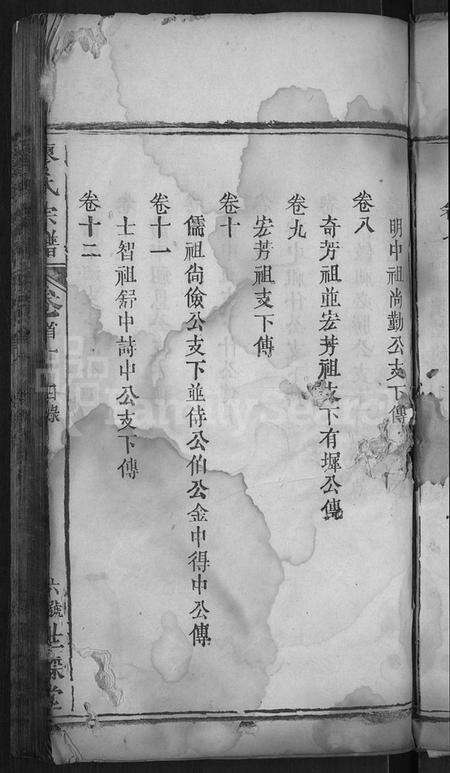 明中祖尚勤公支下傳
卷八
奇芳祖並宏芳祖支下有墀公傳
卷九
宏芳祖支下傳
卷十
儒祖尚儉公支下並侍公伯公金中得中公傳
卷十一
士智祖舒中詩中公支下傳
卷十二
氏宗譜 卷首 目錄 六號 世 堂